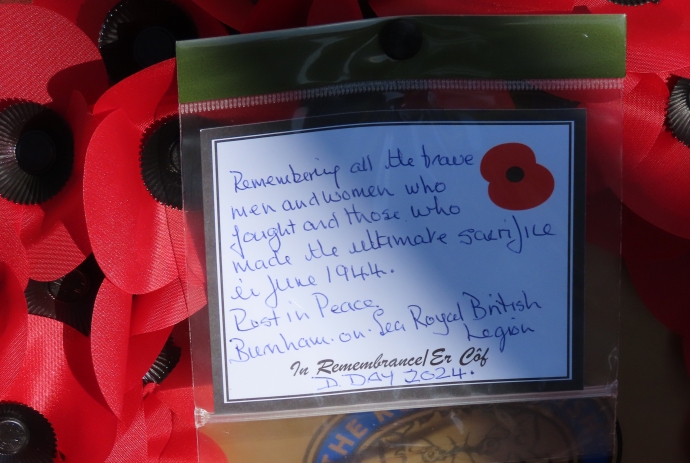 Remembering all the brave
men and women who
fought and those who
made the ultimate sacrifice
in June 1944.
Rest in Peace.
Burnham-on-Sea Royal British
Legion
In Remembrance/Er Côf
D DAY 2024.
THE